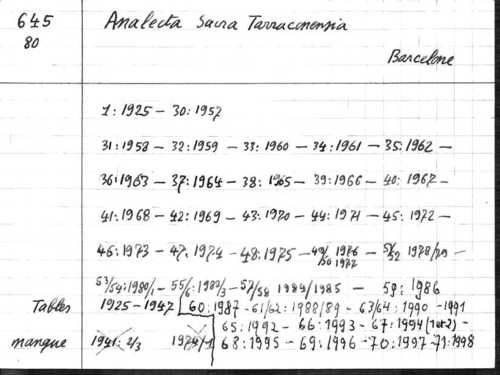 645 Analecta Sacra Tarraconensia
80
Barcelone
1: 1925 - 30: 1957
31: 1958 - 32: 1959 - 33: 1960 - 34: 1961 - 35: 1962 -
36: 1963 - 37: 1964 - 38: 1965 - 39: 1966 - 40: 1967 -
41: 1968 - 42: 1969 - 43: 1970 - 44: 1971 - 45: 1972 -
46: 1973 - 47: 1974 - 48: 1975 - 49/ 1976 50 1977 - 51/52 1978/79 -
53/54: 1980/1 - 55/6: 1982/3 - 57/58 1984/1985 - 59: 1986
Tables 1925 - 1947 60: 1987 - 61/62: 1988/89 - 63/64: 1990 - 1991
65: 1992 - 66: 1993 - 67: 1994 (1 et 2) -
manque 1941: 2/3 1974/1 68: 1995 - 69: 1996 - 70: 1997 - 71: 1998